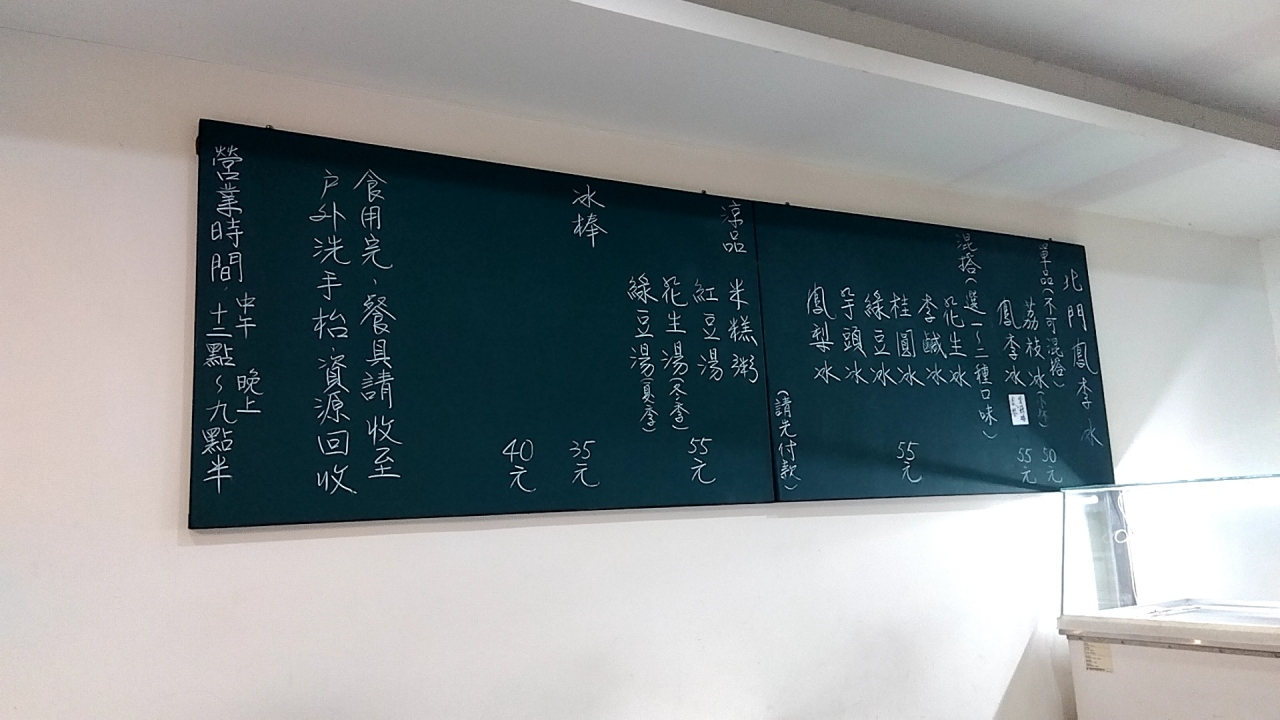 北門鳳李冰
單品(不可混搭)
荔枝冰 50元
鳳李冰 55元
混搭(選一~二種口味)
花生冰
李鹹冰
桂圓冰 55元
綠豆冰
芋頭冰
鳳梨冰
(請先付款)
涼品 米糕粥
紅豆湯 55元
花生湯(冬季)
綠豆湯(夏季)
冰棒 35元
40元
食用完、餐具請收至
戶外洗手枱、資源回收
營業時間:中午十二點~晚上九點半